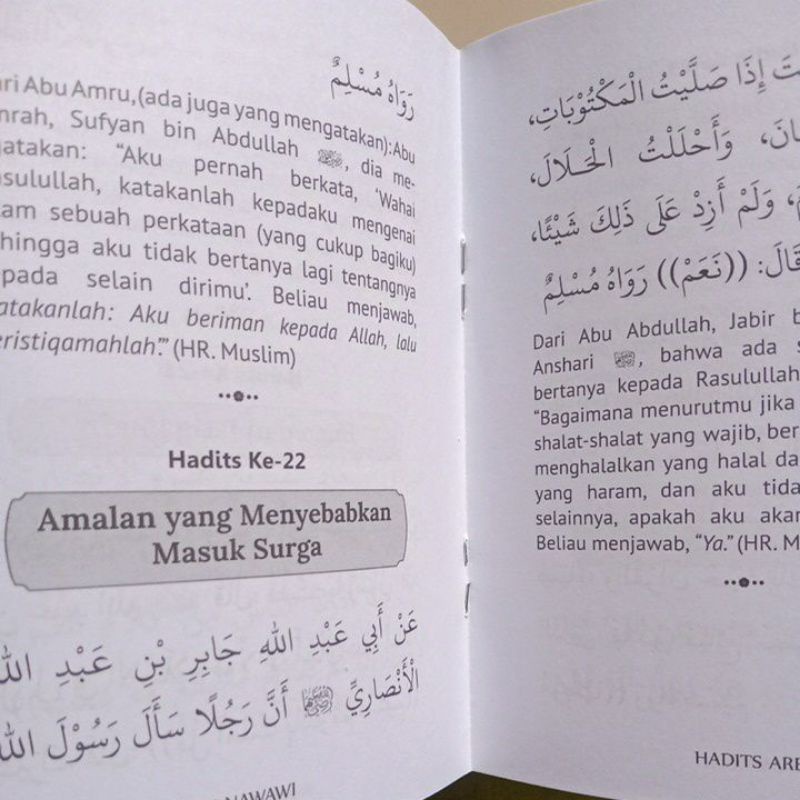 رَوَاهُ مُسْلِمٌ
Abu Amru, (ada juga yang mengatakan): Abu
Sufyan bin Abdullah ﷺ, dia me-
"Aku pernah berkata, 'Wahai
katakanlah kepadaku mengenai
sebuah perkataan (yang cukup bagiku)
hingga aku tidak bertanya lagi tentangnya
pada selain dirimu'. Beliau menjawab,
atakanlah: Aku beriman kepada Allah, lalu
eristiqamahlah.'" (HR. Muslim)
Hadits Ke-22
Amalan yang Menyebabkan
Masuk Surga
عَنْ أَبِي عَبْدِ اللهِ جَابِرِ بْنِ عَبْدِ اللهِ
الْأَنْصَارِيِّ أَنَّ رَجُلًا سَأَلَ رَسُوْلَ اللهِ
NAWAWI
إِذَا صَلَّيْتُ الْمَكْتُوْبَاتِ،
وَأَحْلَلْتُ الْحَلَالَ،
وَلَمْ أَزِدْ عَلَى ذَلِكَ شَيْئًا،
قَالَ: ((نَعَمْ)) رَوَاهُ مُسْلِمٌ
Dari Abu Abdullah, Jabir b
Anshari, bahwa ada s
bertanya kepada Rasulullah
"Bagaimana menurutmu jika
shalat-shalat yang wajib, ber
menghalalkan yang halal da
yang haram, dan aku tida
selainnya, apakah aku akan
Beliau menjawab, "Ya." (HR. M
HADITS ARB